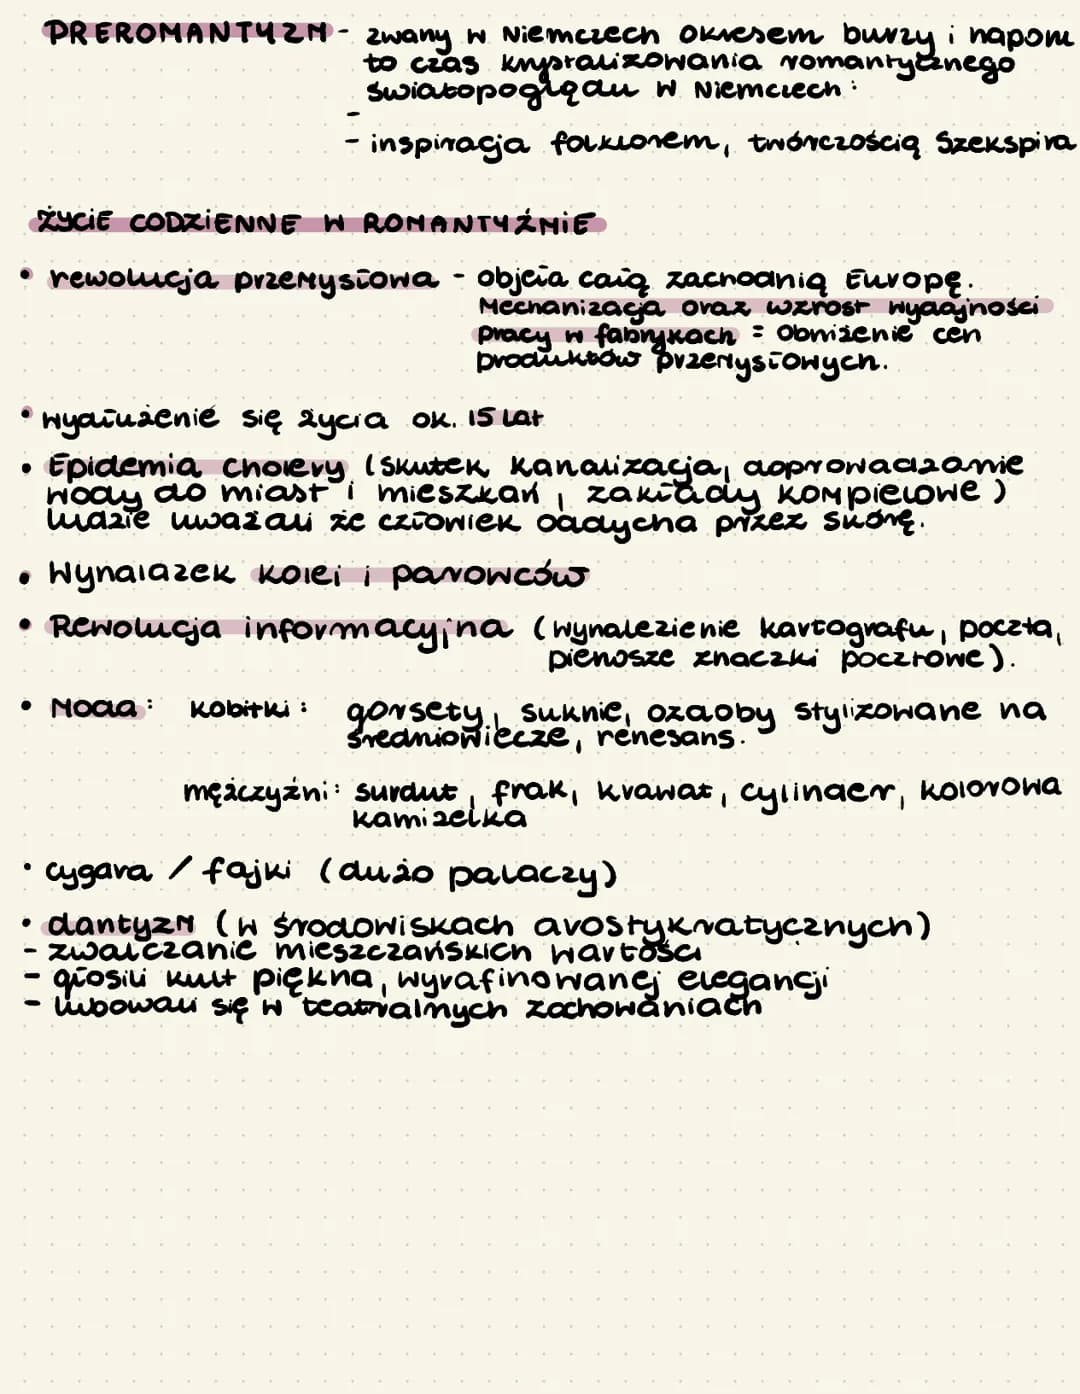 PREROMANTYZM - zwany w Niemczech okresem burzy i napom
to czas krystalizowania romantycznego
światopoglądu w Niemczech :
-
- inspiracja folklorem, twórczością Szekspira
ŻYCIE CODZIENNE W ROMANTYŹMIE
• rewolucja przemysłowa - objęła całą zachodnią Europę.
Mechanizacja oraz wzrost wydajności
pracy w fabrykach = obniżenie cen
produktów przemysłowych.
• wydłużenie się życia ok. 15 lat
• Epidemia cholery (skutek kanalizacja, doprowadzanie
wody do miast i mieszkań, zakłady kompielowe)
ludzie uważali że człowiek oddycha przez skórę.
• Wynalazek kolei i parowców
• Rewolucja informacyjna (wynalezienie kartografu, poczta,
pierwsze znaczki pocztowe).
• Moda: kobitki: gorsety, suknie, ozdoby stylizowane na
średniowiecze, renesans.
mężczyźni: surdut, frak, krawat, cylinder, kolorowa
kamizelka
• cygara / fajki (dużo palaczy)
• dantyzm (w środowiskach arostykratycznych)
- zwalczanie mieszczańskich wartości
- głosili kult piękna, wyrafinowanej elegancji
- lubowali się w teatralnych zachowaniach